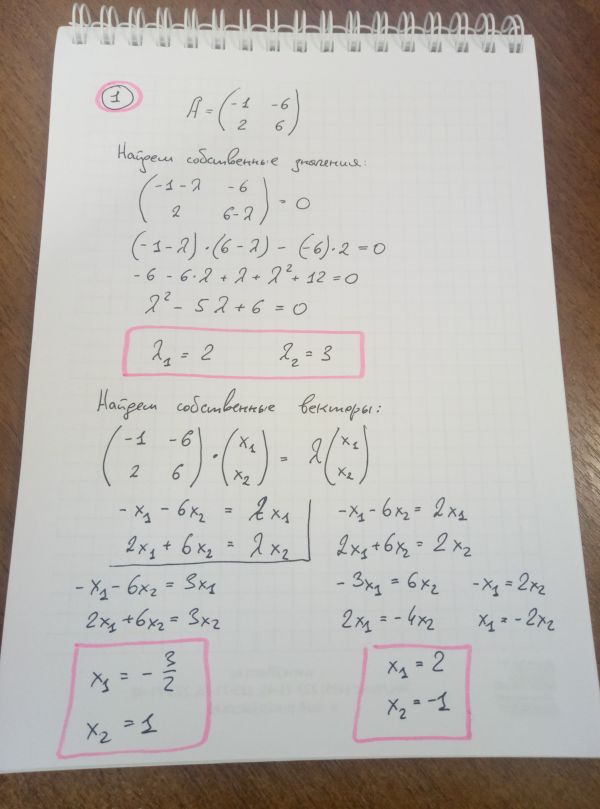 1
A = (-1 -6
2 6)
Найдем собственные значения:
(-1-λ -6
2 6-λ) = 0
(-1-λ)·(6-λ) - (-6)·2 = 0
-6 - 6·λ + λ + λ² + 12 = 0
λ² - 5λ + 6 = 0
λ₁ = 2 λ₂ = 3
Найдем собственные векторы:
(-1 -6
2 6) · (x₁
x₂) = λ (x₁
x₂)
-x₁ - 6x₂ = λx₁
2x₁ + 6x₂ = λx₂
-x₁ - 6x₂ = 3x₁
2x₁ + 6x₂ = 3x₂
x₁ = -3/2
x₂ = 1
-x₁ - 6x₂ = 2x₁
2x₁ + 6x₂ = 2x₂
-3x₁ = 6x₂ -x₁ = 2x₂
2x₁ = -4x₂ x₁ = -2x₂
x₁ = 2
x₂ = -1